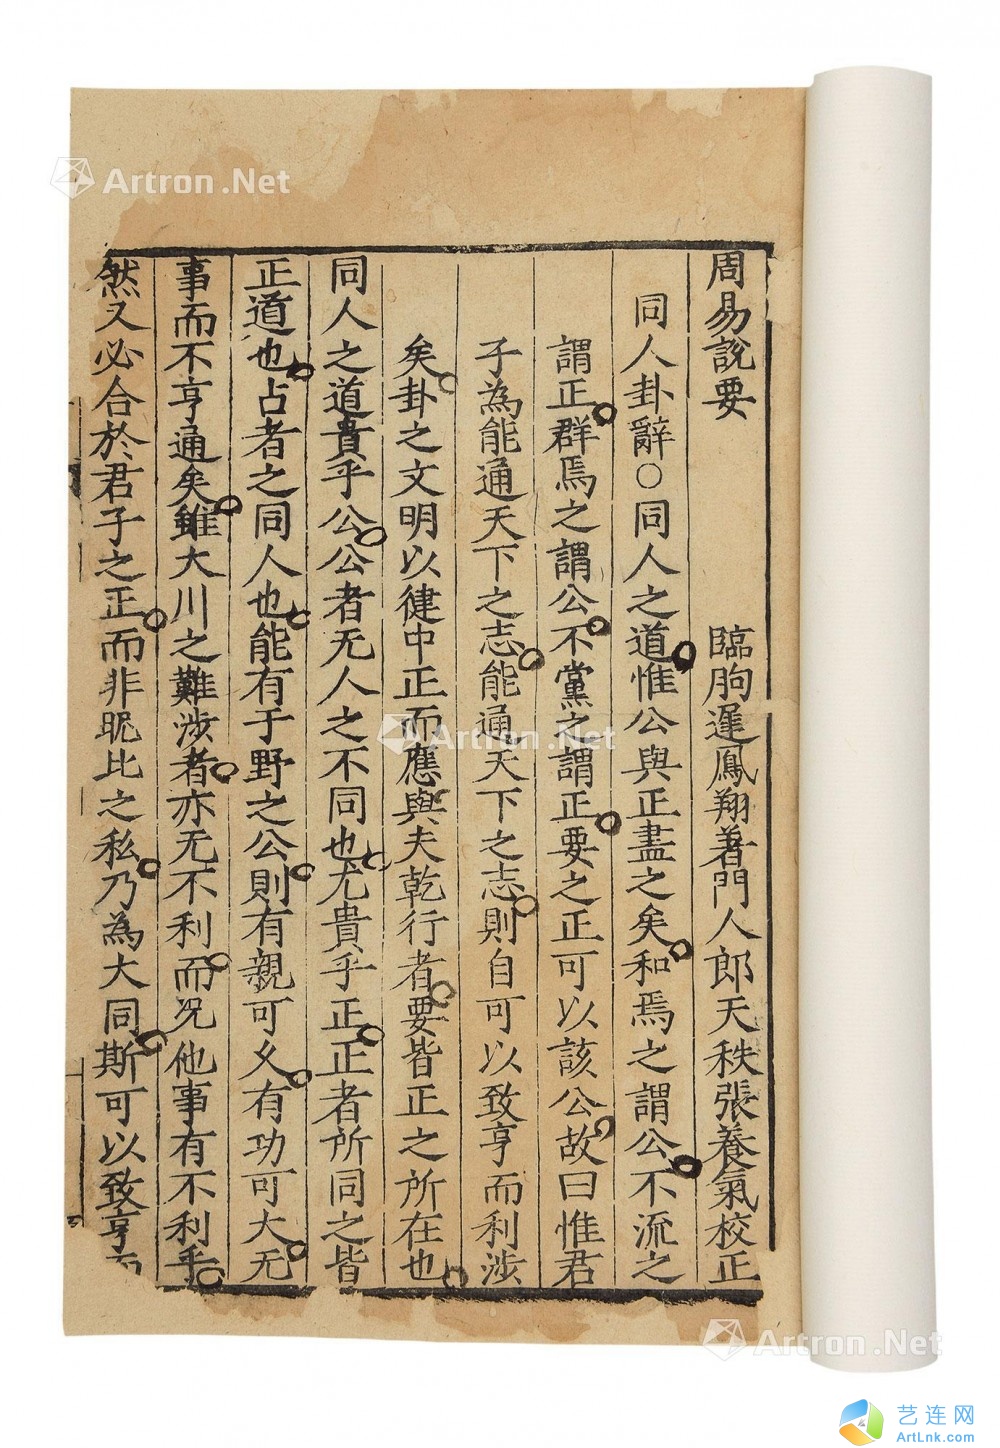 周易說要
臨朐遲鳳翔著門人郎天秩張養氣校正
同人卦辭○同人之道惟公與正盡之矣和焉之謂公不流之
謂正群焉之謂公不黨之謂正要之正可以該公故曰惟君
子為能通天下之志能通天下之志則自可以致亨而利涉
矣卦之文明以健中正而應與夫乾行者要皆正之所在也
同人之道貴乎公公者无人之不同也尤貴乎正正者所同之皆
正道也占者之同人也能有于野之公則有親可久有功可大无
事而不亨通矣雖大川之難涉者亦无不利而况他事有不利乎
然又必合於君子之正而非昵比之私乃為大同斯可以致亨而
Artron.Net
Artron.Net
Artron.Net
艺连网
ArtLnk.com